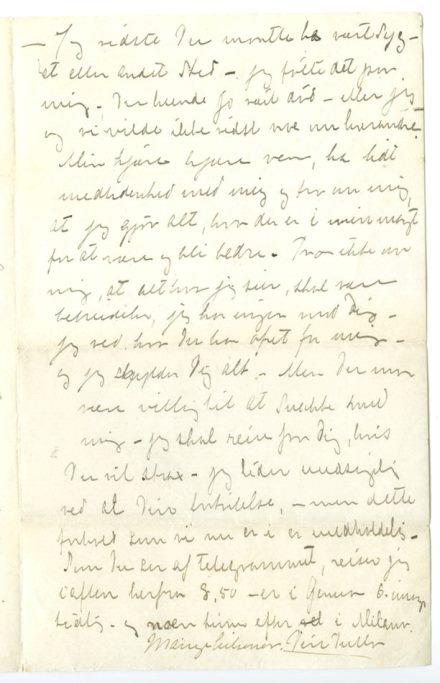 — Jeg vidste Du maatte ha været syg
et eller andet Sted — jeg følte det paa
mig — Du kunde jo vært død — eller jeg
og vi vilde ikke vidst noe om hverandre.
Min kjære kjære ven, ha lidt
med mig og tro om mig,
at jeg gjør alt, hva der er i min magt
for at være og bli bedre. Tro ikke om
mig, at alt hva jeg sier, skal være
bebreidelser, jeg har ingen mod Dig —
jeg ved, hva Du har ofret for mig —
og jeg skylder Dig alt. — Men Du maa
være villig til at snakke med
mig — jeg skal reise fra Dig, hvis
Du vil strax — jeg lider usigelig
ved al Din — men dette
forhold som vi nu er i er uudholdelig —
Som Du ser af telegrammet, reiser jeg
iaften herfra 8,50 — er i Genua 6. imorgen
tidlig — og noen timer efter i Milano.
Din